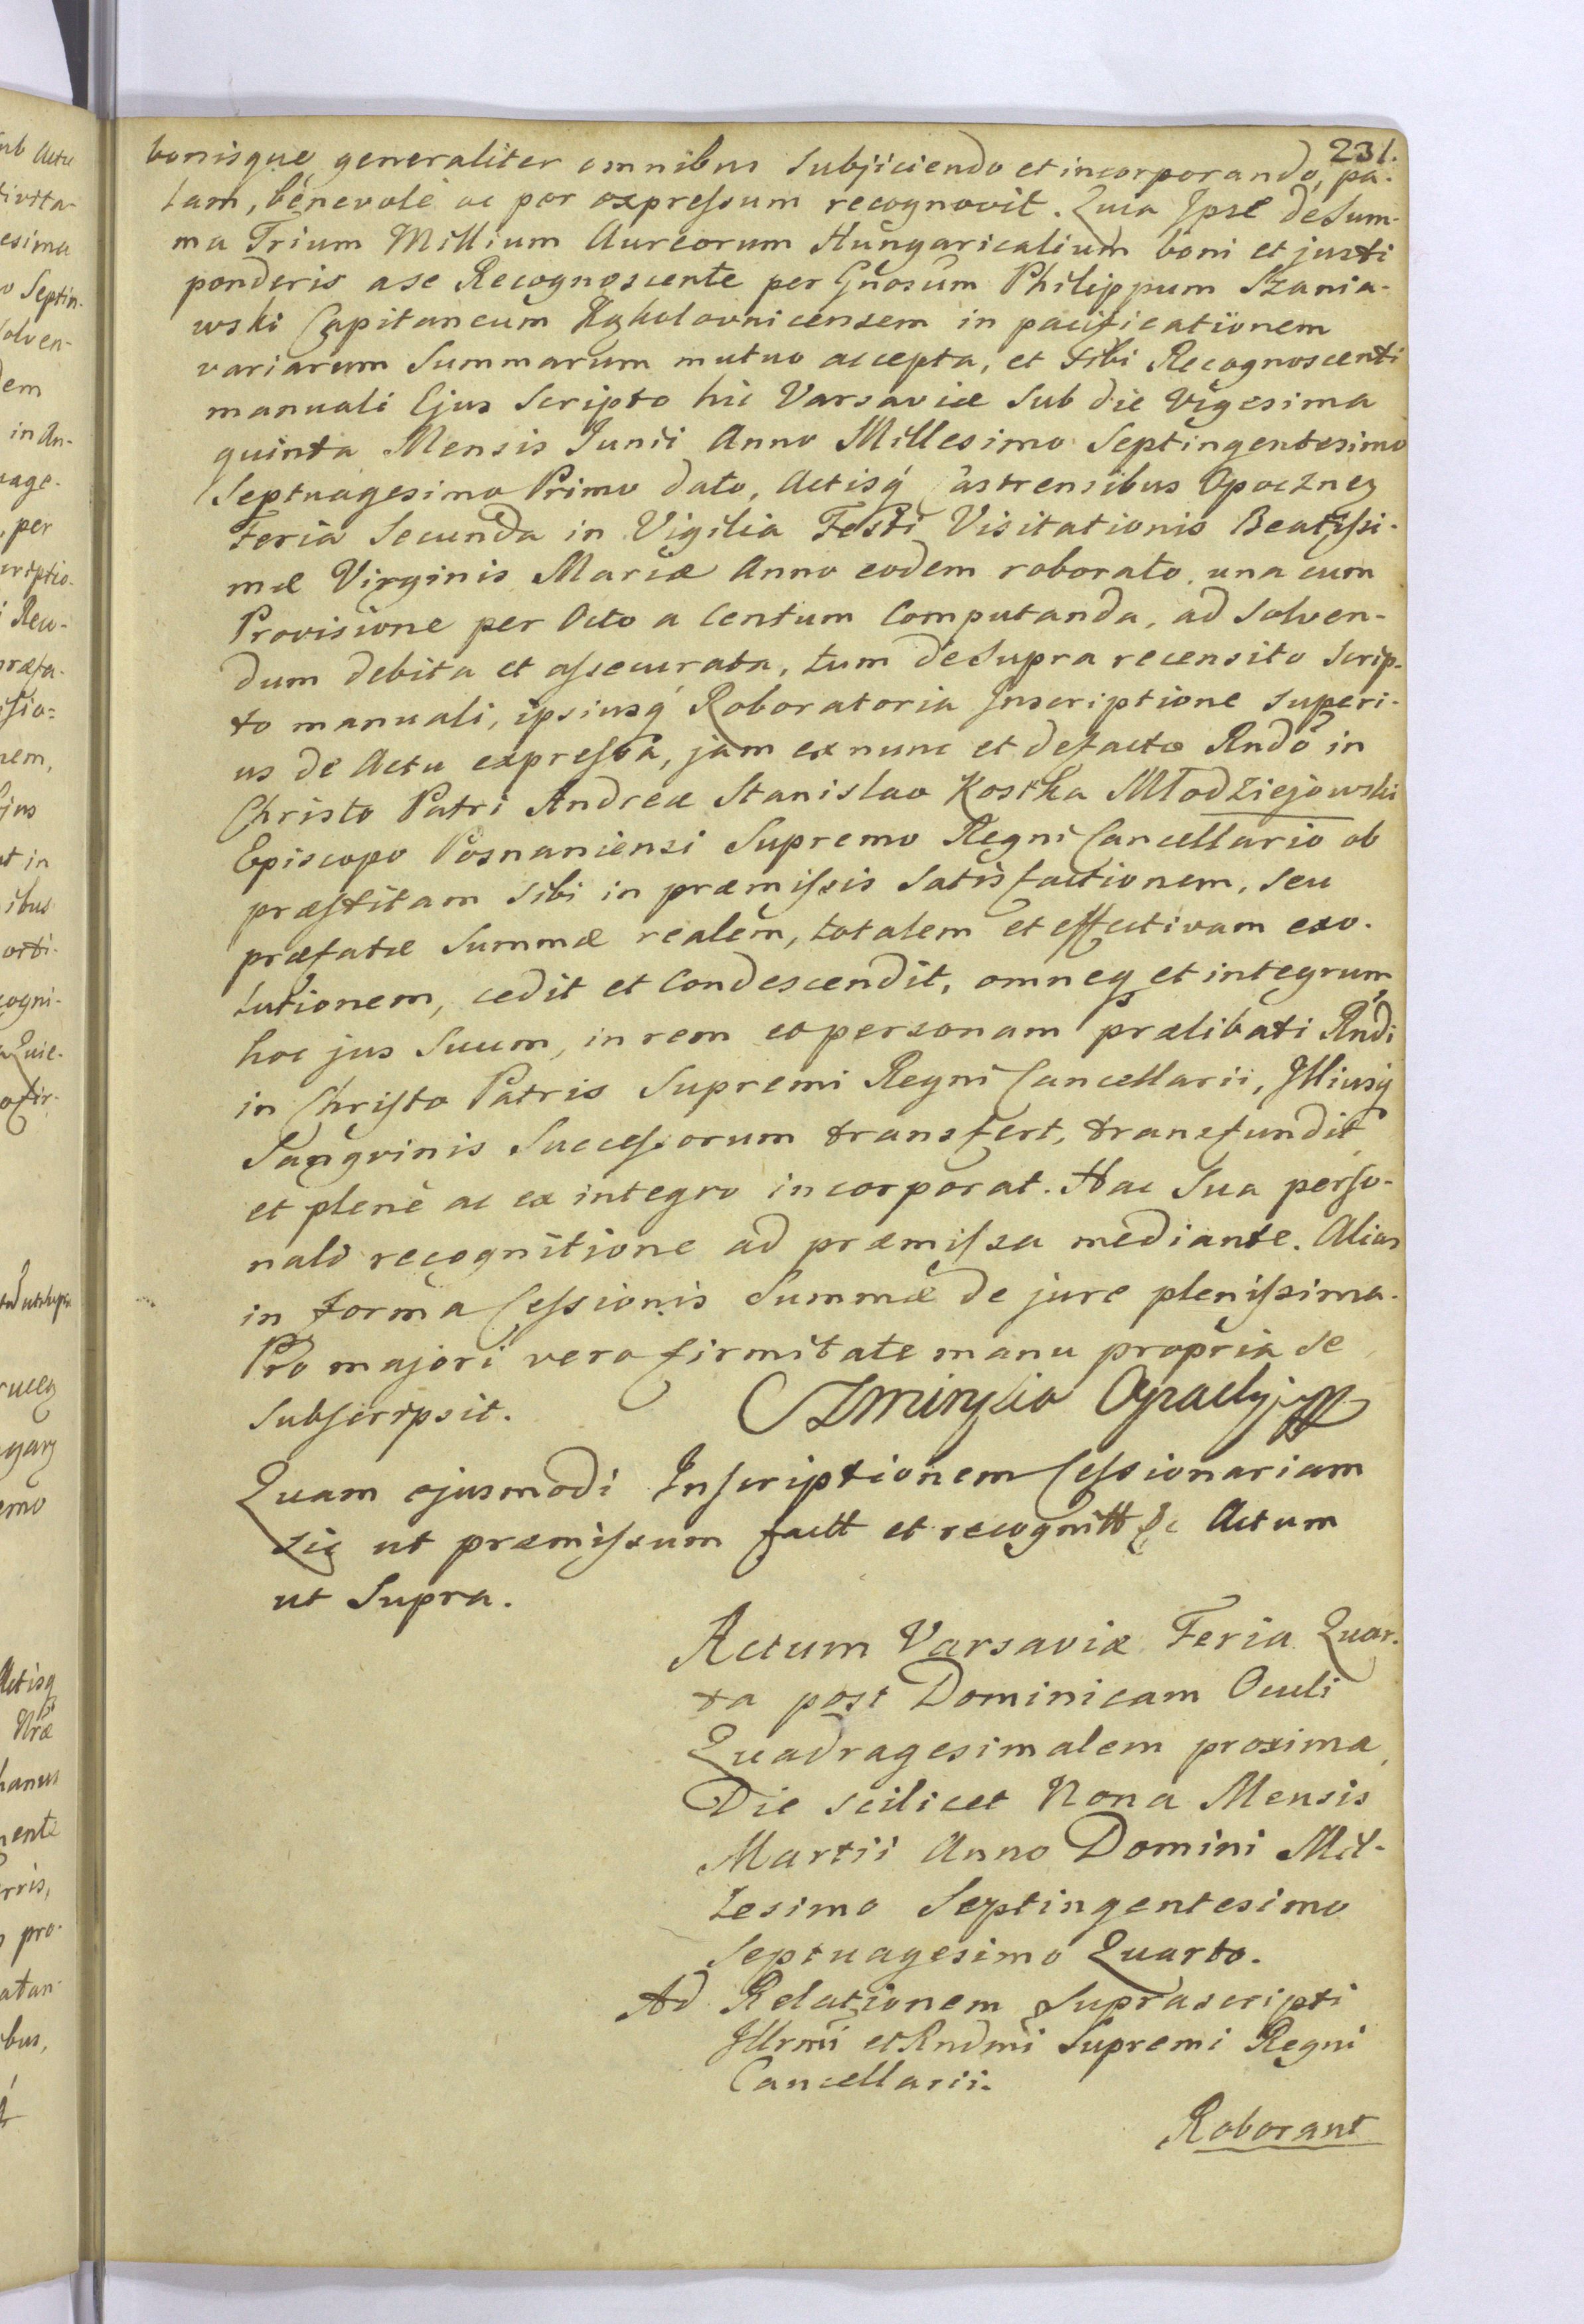 231.
bonisque generaliter omnibus subjiciendo et incorporando, pa-
lam, benevolè ac per expreſsum recognovit. Quia Ipse de Sum-
ma Trium Millium Aureorum Hungaricalium boni et justi
ponderis a se Recognoscente per Gnosum Philippum Szania-
wski Capitaneum in pacificationem
variarum Summarum mutuo accepta, et sibi Recognoscenti
manuali Ejus Scripto hic Varsaviæ sub die Vigesima
quinta Mensis Junii Anno Millesimo Septingentesimo
Septuagesimo Primo dato, Actisq́ Castrensibus Opocznen
Feria Secunda in Vigilia Festi Visitationis Beatiſsi-
mæ Virginis Mariæ Anno eodem roborato, una cum
Provisione per Octo a Centum Computanda, ad Solven-
dum debita et aſsecurata, tum de Supra recensito Scrip-
to manuali, ipsiusq́ Roboratoria Inscriptione superi-
us de Actu expreſsa, jam ex nunc et de facto Rndo in
Christo Patri Andreæ Stanislao Kostka Młodziejowski
Episcopo Posnaniensi Supremo Regni Cancellario ob
præſtitam sibi in præmiſsis Satisfactionem, seu
præfatæ Summæ realem, totalem et effectivam exo-
lutionem, cedit et Condescendit, omneq et integrum
hoc jus Suum, in rem et personam prælibati Rndi
in Chriſto Patris Supremi Regni Cancellarii, Illiusq́
Sangvinis Succeſsorum transfert, transfundit
et plenè ac ex integro incorporat. Hac Sua perſo-
nali recognitione ad præmiſsa mediante. Alias
in forma Ceſsionis Summæ de jure pleniſsima.
Pro majori vero firmitate manu propria se
Subſcripsit.
Quam ejusmodi Inſcriptionem Ceſsionariam
sic ut præmiſsum factt et recognitt &c Actum
ut Supra.
Actum Varsaviæ Feria Quar-
ta post Dominicam Oculi
Quadragesimalem proxima,
Die scilicet Nona Mensis
Martii Anno Domini Mil-
lesimo Septingentesimo
Septuagesimo Quarto.
Ad Relationem Suprascripti
Illrmi et Rndmi Supremi Regni
Cancellarii.
Roborant